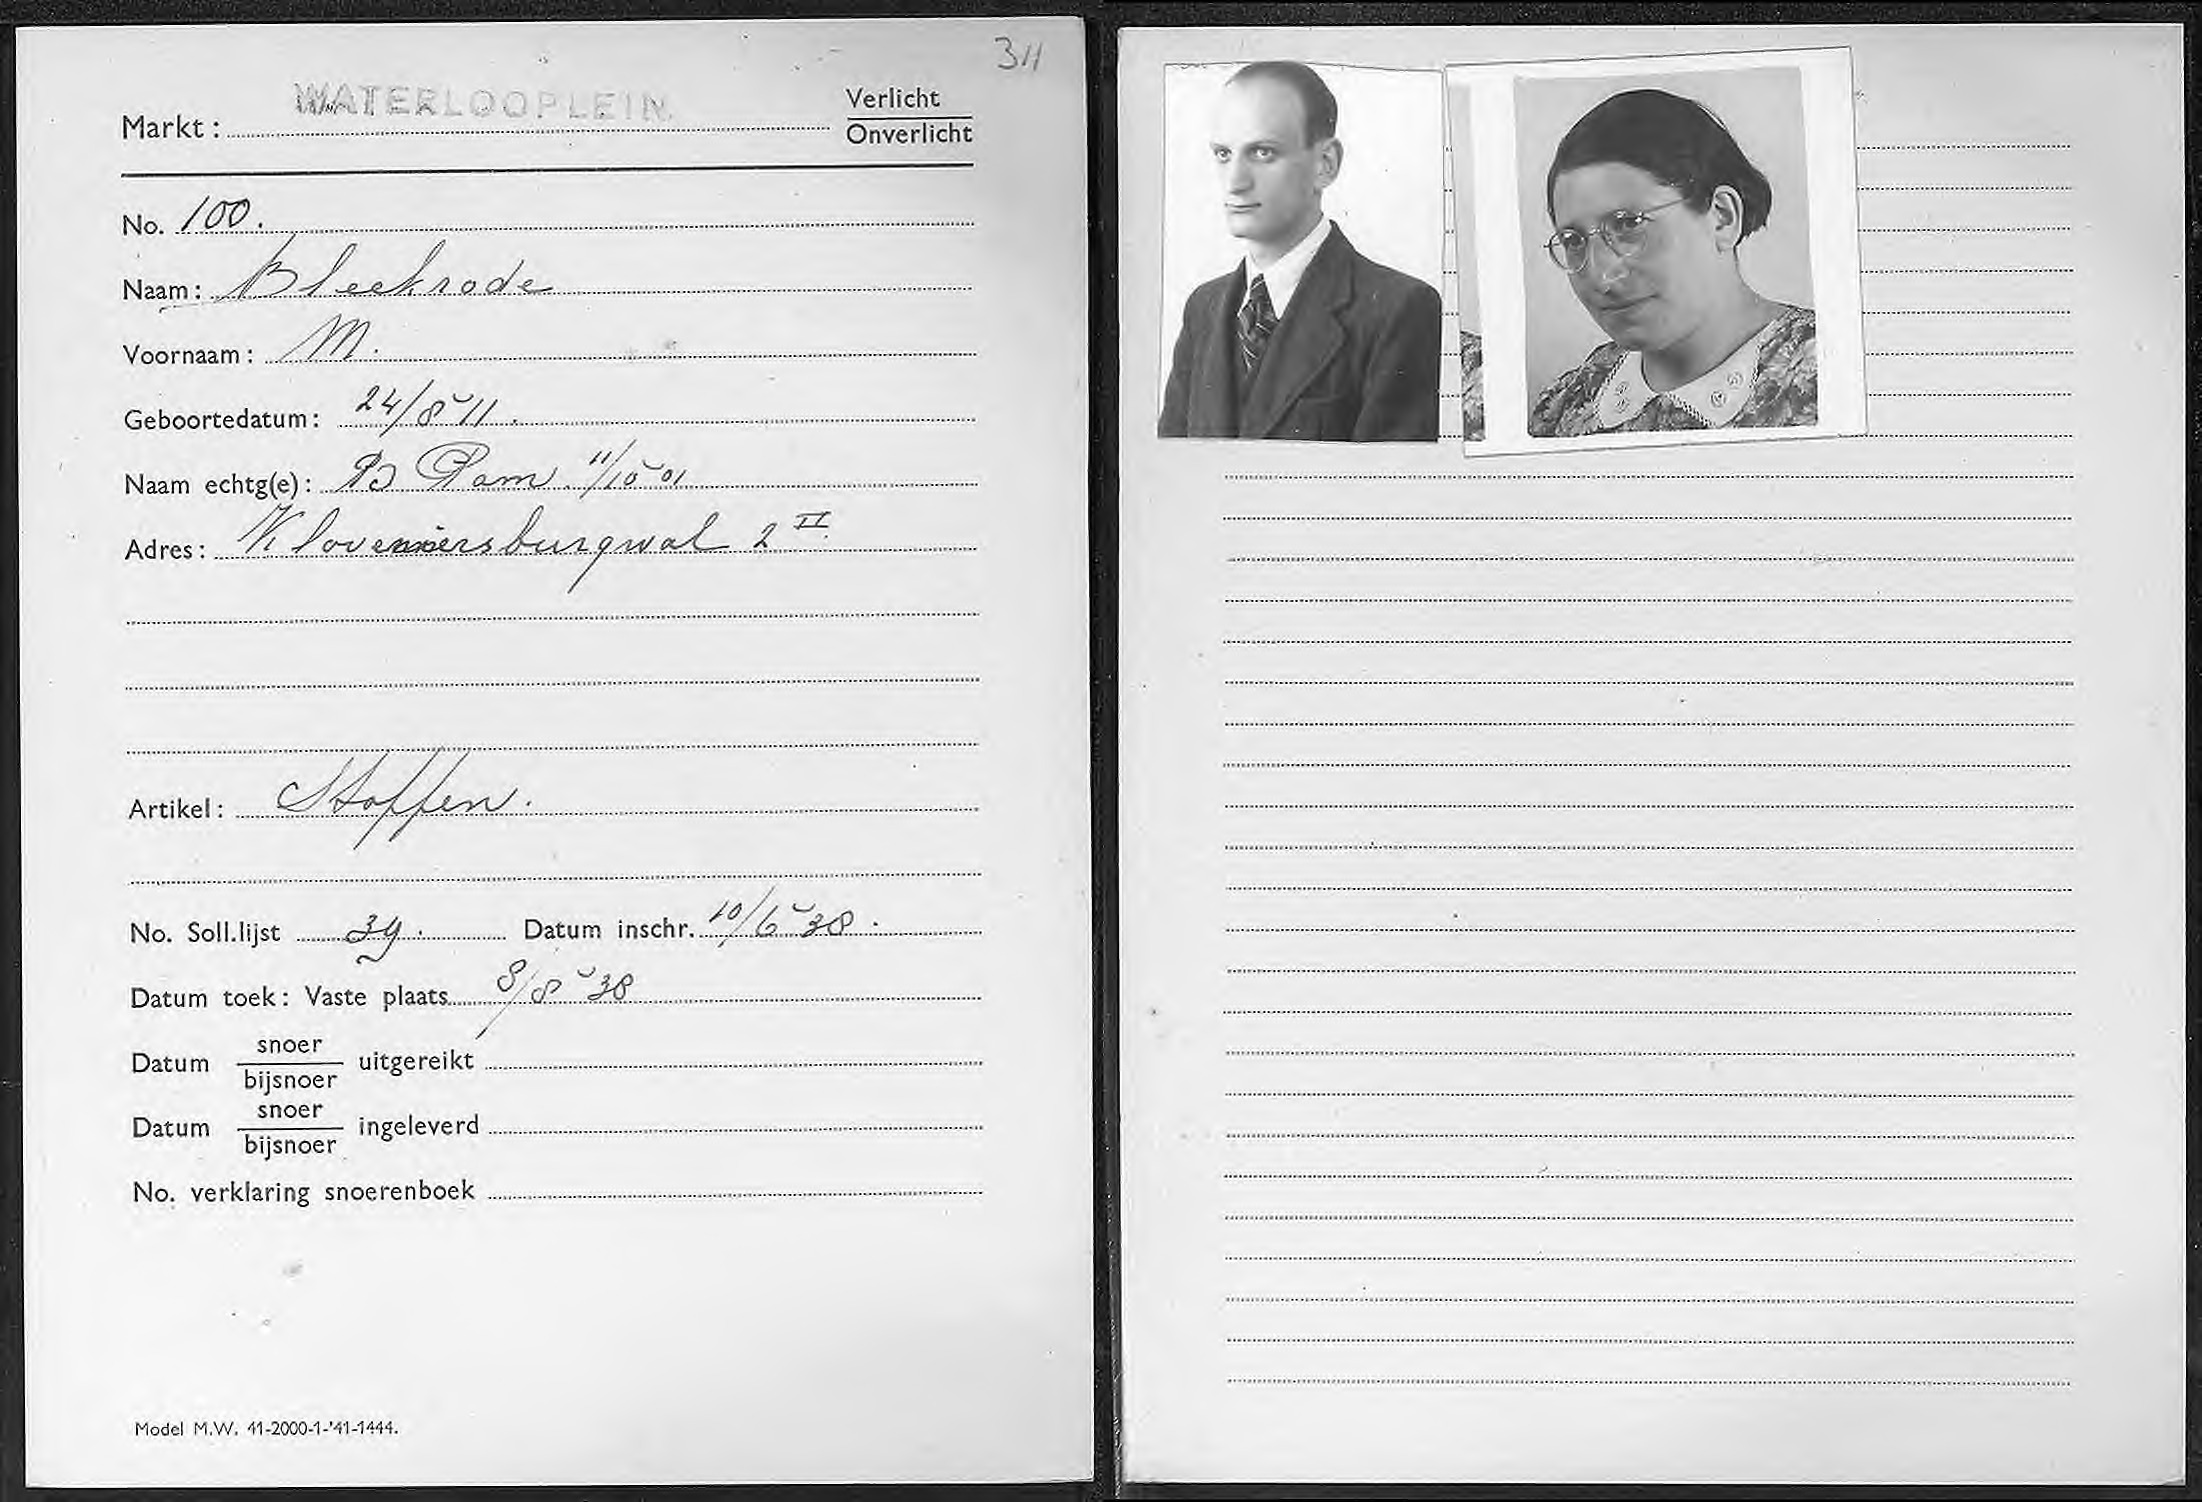 311
Markt: WATERLOOPLEIN.
Verlicht
Onverlicht
No. 100.
Naam: Bleekrode
Voornaam: M.
Geboortedatum: 24/8 11.
Naam echtg(e): B Dam 11/10 01
Adres: Kloveniersburgwal 2 II
Artikel: Stoffen.
No. Soll.lijst 39. Datum inschr. 10/6 38.
Datum toek: Vaste plaats 8/8 38
Datum snoer/bijsnoer uitgereikt
Datum snoer/bijsnoer ingeleverd
No. verklaring snoerenboek
Model M.W. 41-2000-1-'41-1444.